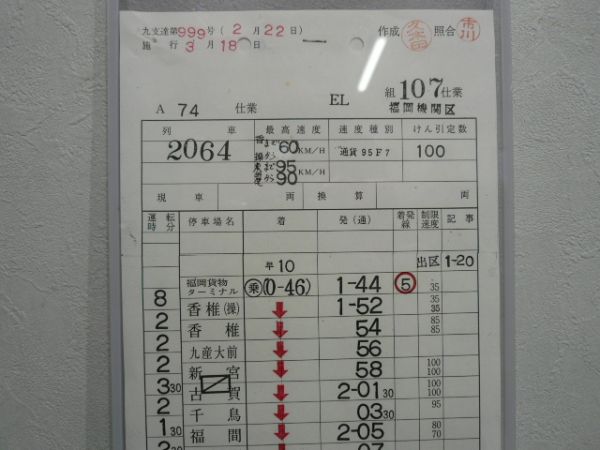 九支達第999号(2月22日)
施行3月18日
作成 久本田 照合 市川
EL 組107仕業
A 74 仕業 福岡機関区
列車 最高速度 速度種別 けん引定数
2064 60KM/H 95KM/H 90 通貨95F7 100
現車 両 換算 両
運転時分 停車場名 着 発(通) 着発線 制限速度 記事
早10 出区 1-20
福岡貨物ターミナル 乗(0-46) 1-44 5 35
8 香椎(操) 1-52 35 35
2 香椎 54 85 85
2 九産大前 56
2 新宮 58 100 100
3 30 古賀 2-01 30 100 100
2 千鳥 03 30 95
1 30 福間 2-05 80 70
07